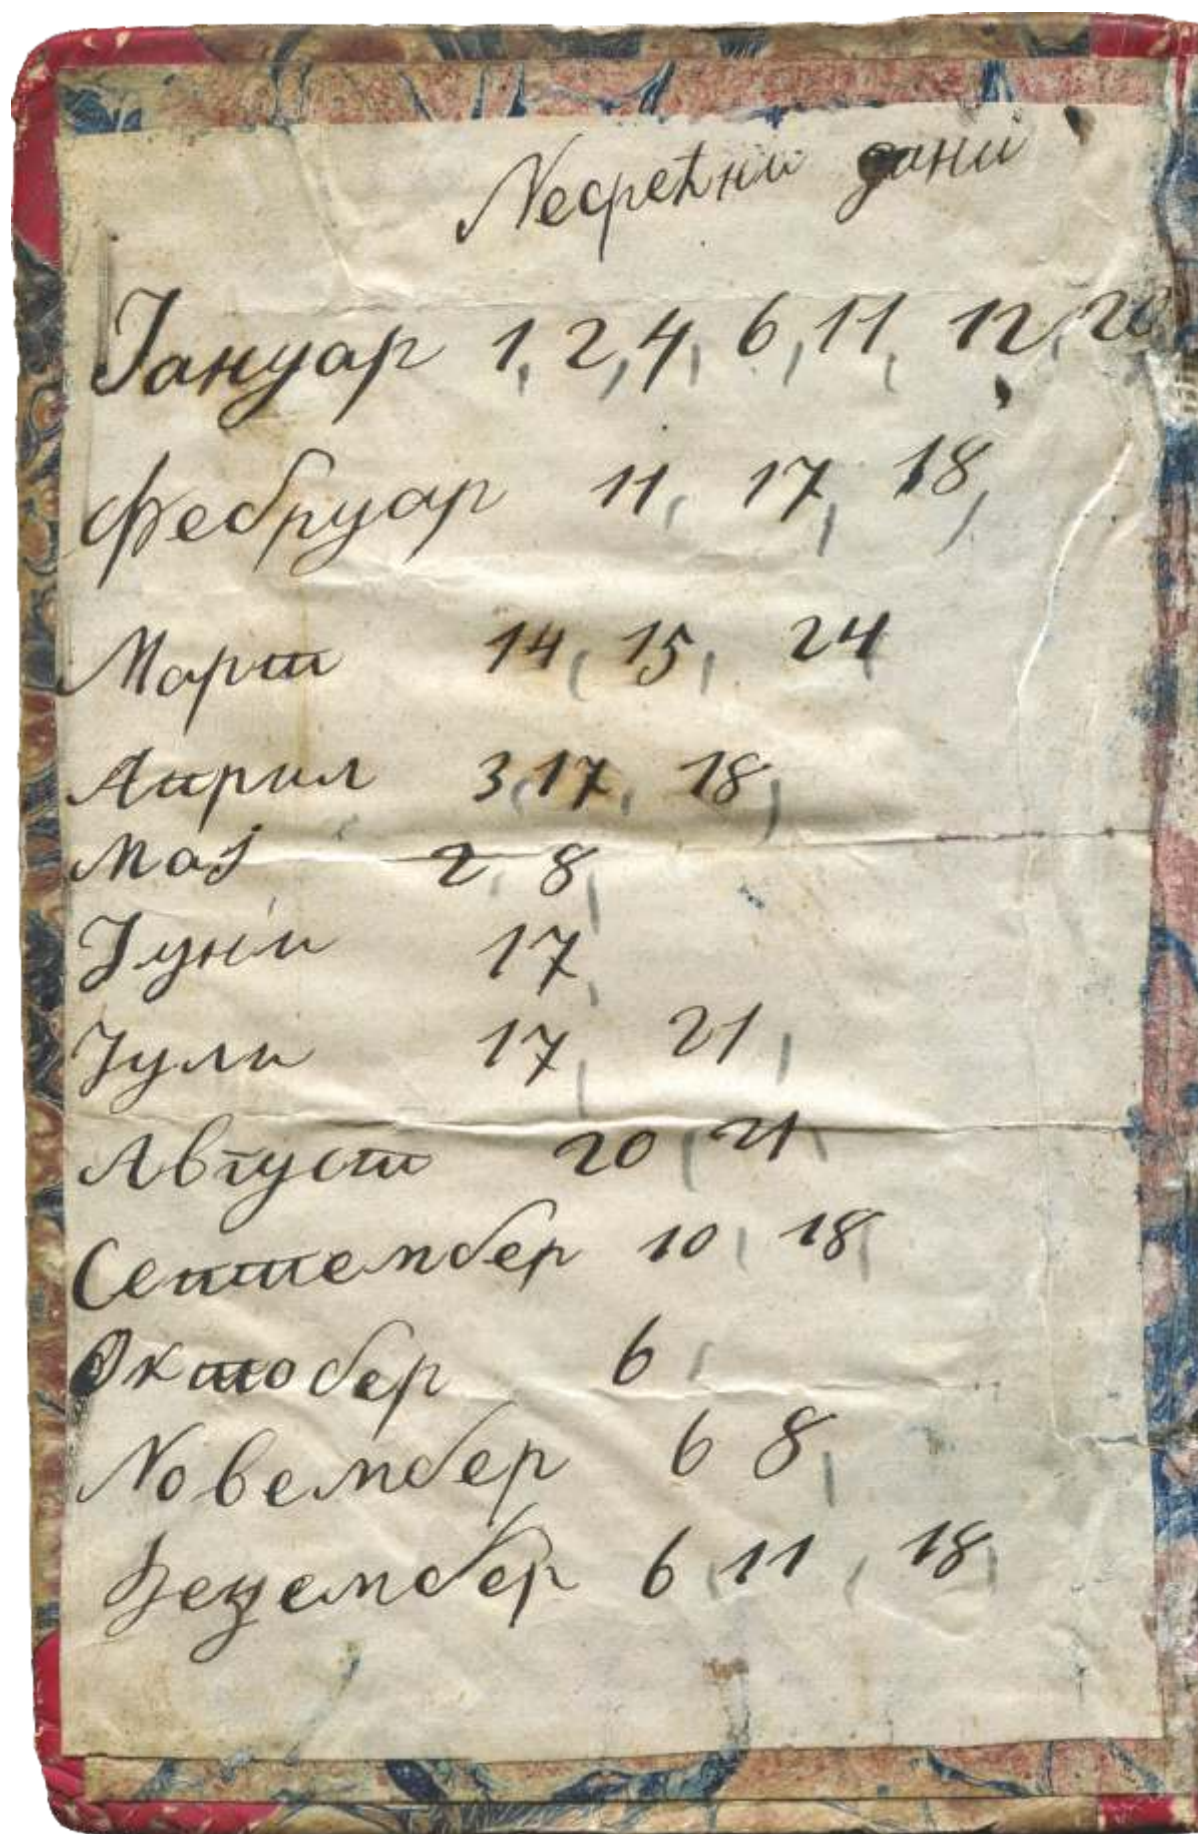 Несрећни дани
Јануар 1, 2, 4, 6, 11, 12, 20
Фебруар 11, 17, 18,
Март 14, 15, 24
Април 3, 17, 18,
Мај 2, 8,
Јуніи 17,
Јули 17, 21,
Август 20, 21,
Септембер 10, 18,
Октобер 6,
Новембер 6 8,
Децембер 6, 11, 18,